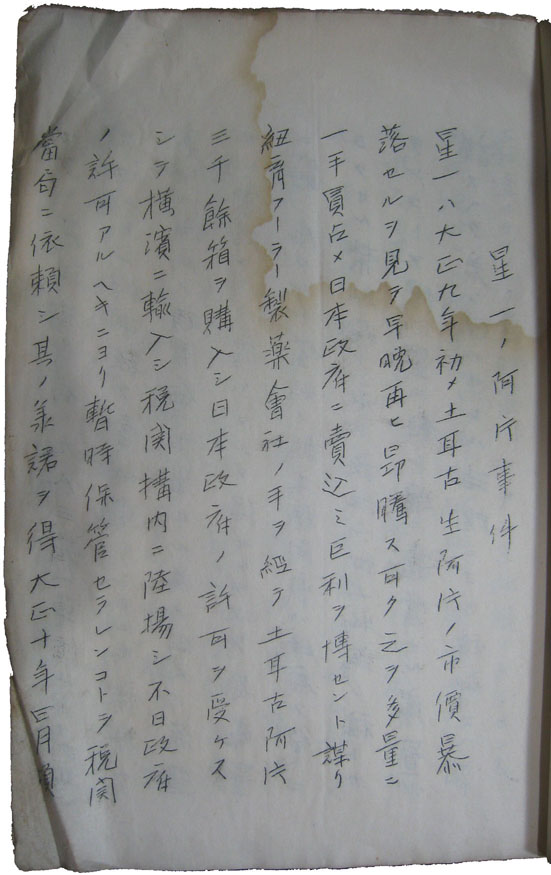 星一ノ阿片事件
星一ハ大正九年初メ土耳古生阿片ノ市價暴
落セルヲ見テ早晩再ヒ昂騰ス可ク之ヲ多量ニ
一手買占メ日本政府ニ賣込ミ巨利ヲ博セント謀リ
紐育フーラー製薬會社ノ手ヲ經テ土耳古阿片
三千餘箱ヲ購入シ日本政府ノ許可ヲ受ケス
シテ横濱ニ輸入シ税関構内ニ陸揚シ不日政府
ノ許可アルヘキニヨリ暫時保管セラレンコトヲ税関
當局ニ依頼シ其ノ承諾ヲ得大正十年四月頃